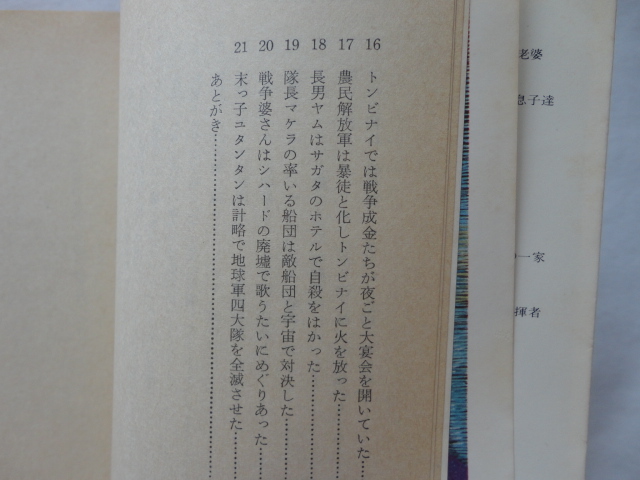 老婆
息子達
の一家
揮者
16 トンビナイでは戦争成金たちが夜ごと大宴会を開いていた……
17 農民解放軍は暴徒と化しトンビナイに火を放った……
18 長男ヤムはサガタのホテルで自殺をはかった……
19 隊長マケラの率いる船団は敵船団と宇宙で対決した……
20 戦争婆さんはシハードの廃墟で歌うたいにめぐりあった……
21 末っ子ユタンタンは計略で地球軍四大隊を全滅させた……
あとがき……